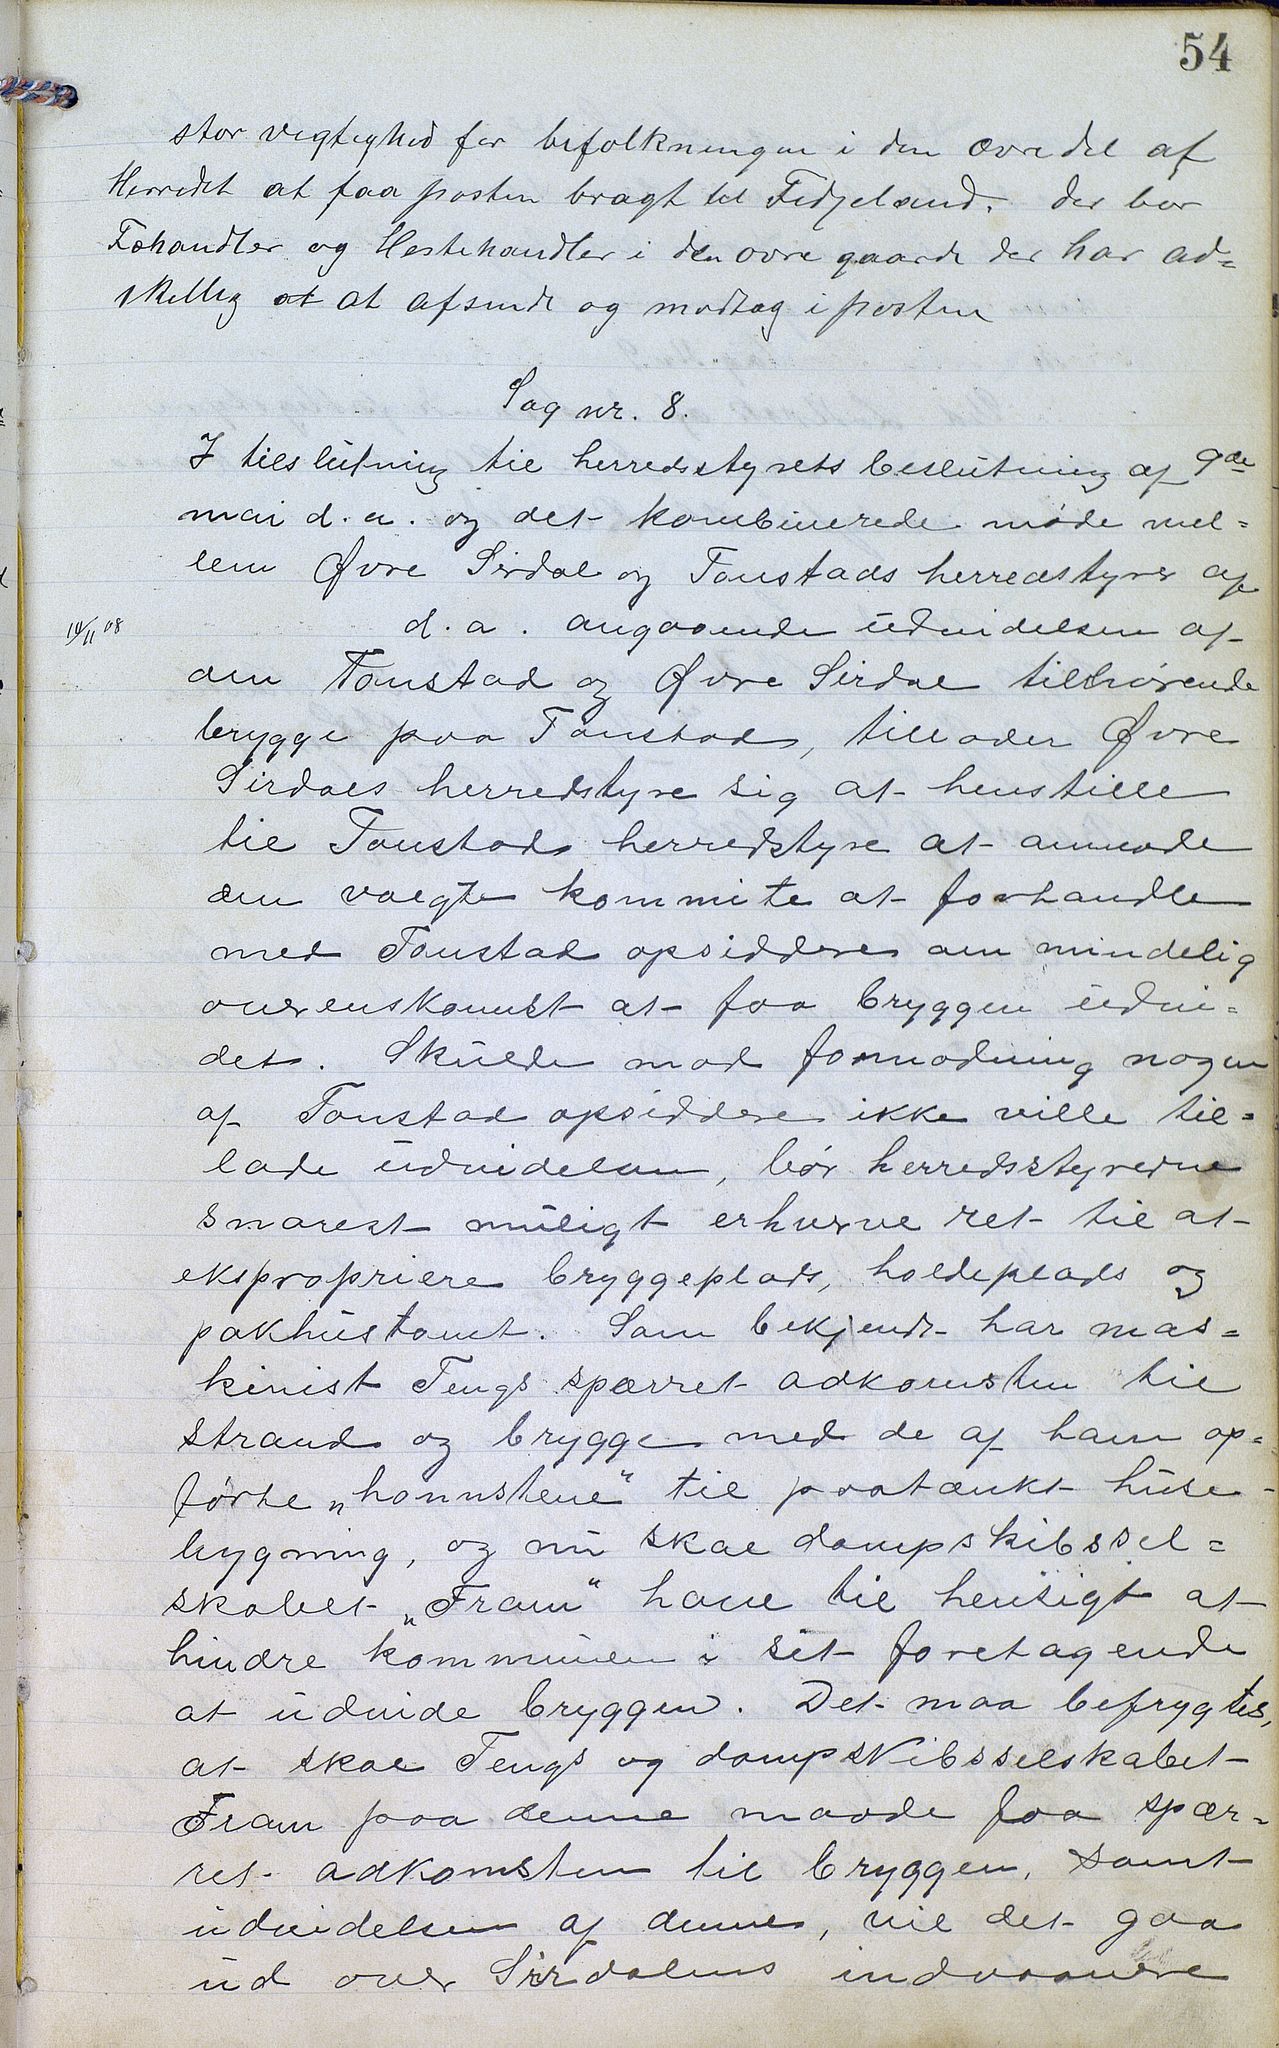 54
stor vigtighed for befolkningen i den øvre del af
Herredet at faa posten bragt til Fidjeland. der bor
Fæhandler og Hestehandler i den øvre gaarde der har ad=
skillig at at afsende og modtag i posten
Sag nr. 8.
I tilslutning til herredsstyrets beslutning af 9de
mai d. a. og det kombinerede møde mel=
lem Øvre Sirdal og Tonstads herredstyrer af
14/11 08 d. a. angaaende udvidelsen af
den Tonstad og Øvre Sirdal tilhørende
brygge paa Tonstad, tillader Øvre
Sirdals herredstyre sig at henstille
til Tonstads herredstyre at anmode
den valgte kommite at forhandle
med Tonstad opsiddere om mindelig
overenskomst at faa bryggen udvi=
det. Skulde mod formodning nogen
af Tonstad opsiddere ikke ville til=
lade udvidelsen, bør herredsstyrerne
snarest muligt erhverve ret til at
ekspropriere bryggeplads, holdeplads og
pakhustomt. Som bekjendt har mas=
kinist Tengs spærret adkomsten til
strand og brygge med de af ham op=
førte „honnstene“ til paatænkt huse-
bygning, og nu skal dampskibssel=
skabet „Fram“ have til hensigt at
hindre kommunen i sit foretagende
at udvide bryggen. Det maa befrygtes,
at skal Tengs og dampskibsselskabet
Fram paa denne maade faa spær=
ret adkomsten til bryggen, samt
udvidelsen af denne, vil det gaa
ud over Sirdalens indvaanere